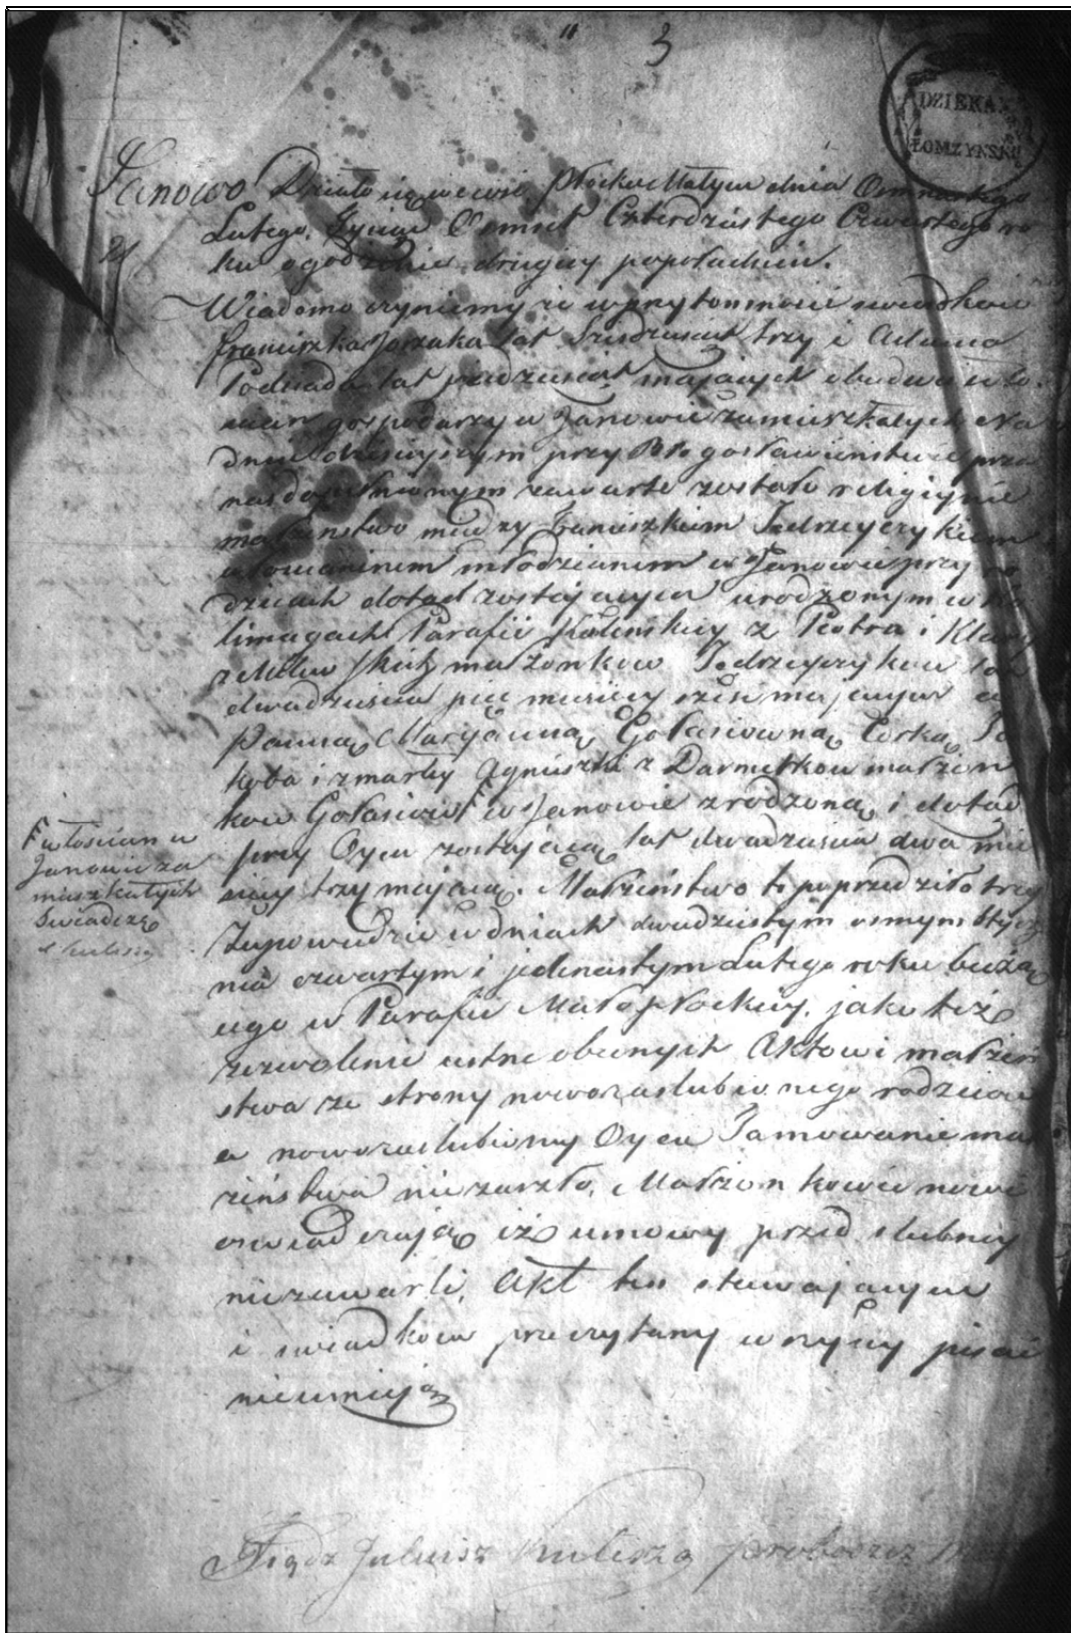 3
DZIEKA
ŁOMZYNSK
Janowo Działo się we wsi Płocku Małym dnia Osmnastego
Lutego, Tysiąc Osmset Czterdziestego Czwartego ro
ku o godzinie drugiey popołudniu.
Wiadomo czyniemy że w przytomności swiadkow
Franciszka Jarzaka lat szesdziesiąt trzy i Adama
lat piedziesiąt maiących obudwu wło
scian gospodarzy w Janowie zamieszkałych Na
dniu dzisieyszym przy Błogosławienstwie prze
nas dopełnionym zawarte zostało religiynie
małżenstwo miedzy Franciszkiem Jedrzeyczykiem
włoscianinem młodzianem w Janowie przy ro
dzicach dotąd zostaiącym urodzonym w Ko
limagach Parafii Kolenskiey z Piotra i Klary
małżonkow Jedrzeyczykow lat
dwadziescia pięc miesięcy szesc maiącym a
Panną Maryanną Gołasiowną Corką Ja
koba i zmarłey Agnieszki z Darmetkow małżon
kow Gołasiow w Janowie zrodzoną i dotąd
przy Oycu zostaiącą lat dwadziescia dwa mie
sięcy trzy maiącą. Małżenstwo to poprzedziło trzy
Zapowiedzie w dniach dwudziestym osmym Stycz
nia czwartym i jedenastym Lutego roku bieżą
cego w Parafii Małopłockiey, jako też
zezwolenie ustne obecnych Aktowi małżen
stwa ze strony nowozaslubionego rodzicow
a nowozaslubioney Oyca Tamowanie mał
żenstwa nie zaszło, Małżonkowie nowi
oswiadczaią iż umowy przed slubney
niezawarli, Akt ten stawaiącym
i swiadkom przeczytany w szyscy pisac
nieumieją
włoscian w
Janowie za
mieszkałych
Swiadczę
X Kulesza
Xiądz Juliusz Kulesza proboszcz